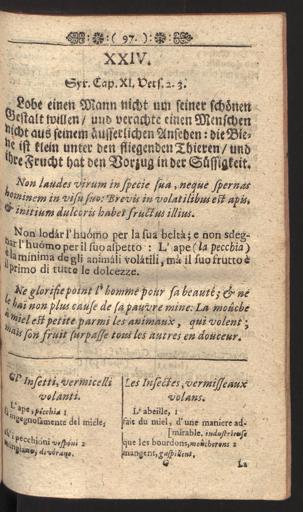 ( 97. )
XXIV.
Syr. Cap. XI. Vers. 2. 3.
Lobe einen Mann nicht um seiner schönen
Gestalt willen/ und verachte einen Menschen
nicht aus seinem äusserlichen Ansehen: die Bie-
ne ist klein unter den fliegenden Thieren/ und
ihre Frucht hat den Vorzug in der Süssigkeit.
Non laudes virum in specie sua, neque spernas
hominem in visu suo: Brevis in volatilibus est apis,
& initium dulcoris habet fructus illius.
Non lodár l'huómo per la sua beltà; e non sdeg-
nar l'huómo per il suo aspetto: L'ape (la pecchia)
è la mínima de gli animáli volátili, mà il suo frutto è
il primo di tutte le dolcezze.
Ne glorifie point l'homme pour sa beauté; & ne
le hai non plus cause de sa pauvre mine: La mouche
à miel est petite parmi les animaux, qui volent;
mais son fruit surpasse tous les autres en douceur.
Gl' Insetti, vermicelli
volanti.
L'ape, pécchia 1
fà ingegnosamente del miéle,
pecchióni vespóni 2
mangiano, devórano.
Les Insectes, vermisseaux
volans.
L'abeille, 1
fait du miel, d'une maniere ad-
[mirable, industrieuse
que les bourdons, moucherons 2
mangent, gaspillent.
G
La